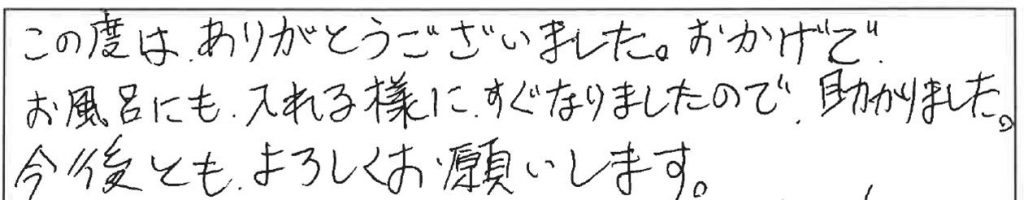 この度は、ありがとうございました。おかげで、
お風呂にも、入れる様に、すぐなりましたので、助かりました。
今後とも、よろしくお願いします。